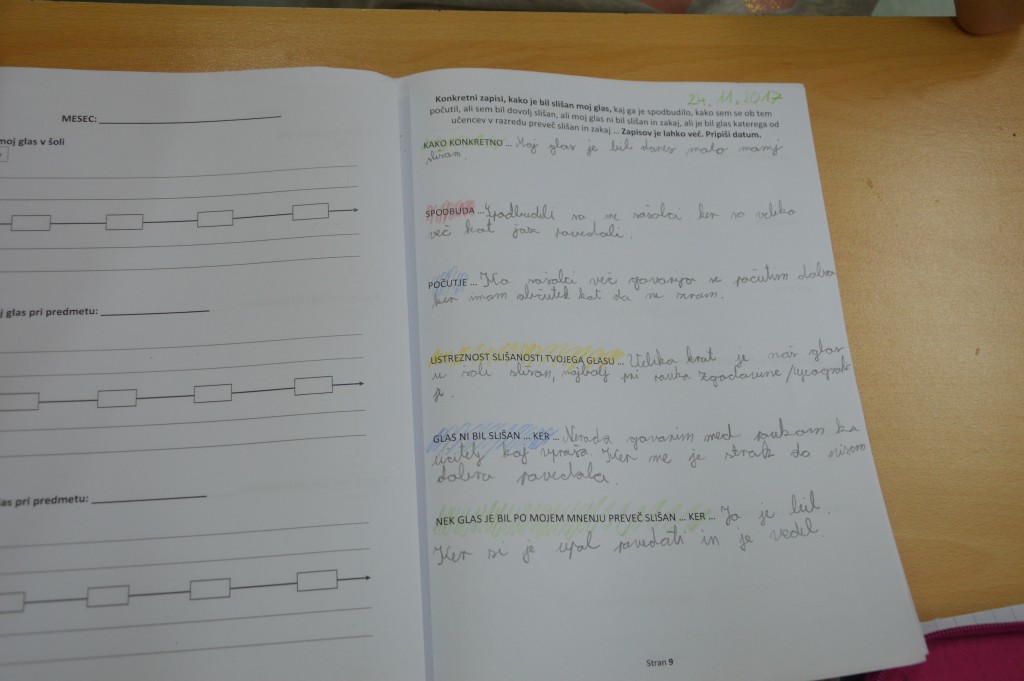 MESEC:
moj glas v šoli
j glas pri predmetu:
as pri predmetu:
24.11.2017
Konkretni zapisi, kako je bil slišan moj glas, kaj ga je spodbudilo, kako sem se ob tem
počutil, ali sem bil dovolj slišan, ali moj glas ni bil slišan in zakaj, ali je bil glas katerega od
učencev v razredu preveč slišan in zakaj ... Zapisov je lahko več. Pripiši datum.
KAKO KONKRETNO ... Moj glas je bil danes malo manj
slišan.
SPODBUDA ... Spodbudili so me sošolci ker so veliko
več kot jaz povedali.
POČUTJE ... Ko sošolci več govorijo se počutim dobro
ker imam občutek kot da ne znam.
USTREZNOST SLIŠANOSTI TVOJEGA GLASU ... Velika krat je naš glas
v šoli slišan, najbolj pri pouku zgodovine/
GLAS NI BIL SLIŠAN ... KER ... Nerada govorim med poukom ko
učitelj kaj vpraša. Ker me je strah da nisem
dobro povedala.
NEK GLAS JE BIL PO MOJEM MNENJU PREVEČ SLIŠAN ... KER ... Ja je bil.
Ker si je upal povedati in je vedel.
Stran 9